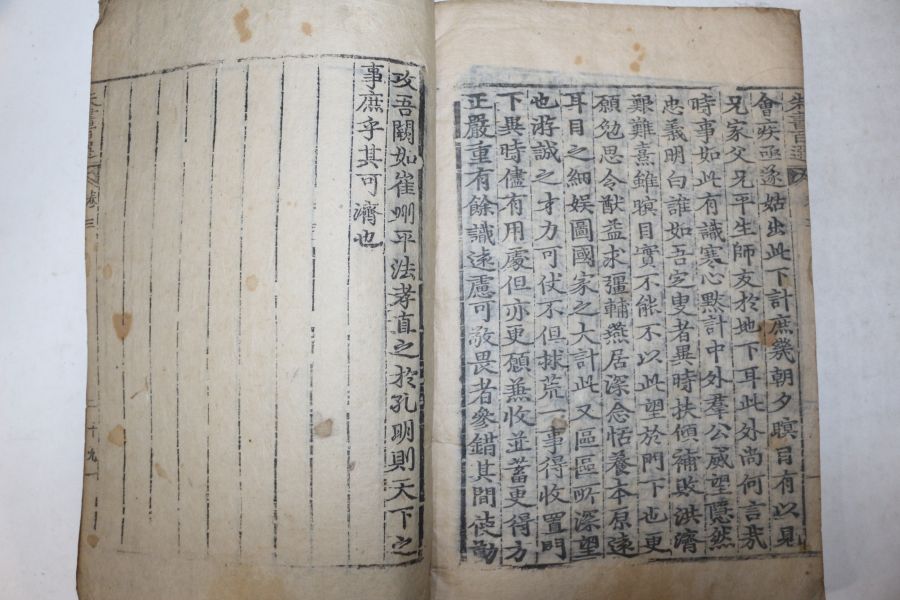 朱書百選
會疾亟遂姑出此下計庶幾朝夕瞑目有以見
兄家父兄平生師友於地下耳此外尚何言哉
時事如此有識寒心默計中外羣公威望隱然
忠義明白誰如吾定叟者異時扶傾補敗洪濟
艱難熹雖瞑目實不能不以此望於門下也更
願勉思令猷益求彊輔燕居深念恬養本原遠
耳目之細娛圖國家之大計此又區區所深望
也游誠之才力可仗不但捄荒一事得收置門
下異時儘有用處但亦更願兼收並蓄更得方
正嚴重有餘識遠慮可敬畏者參錯其間使動
攻吾闕如崔州平法孝直之於孔明則天下之
事庶乎其可濟也
朱書百選 卷三 十九